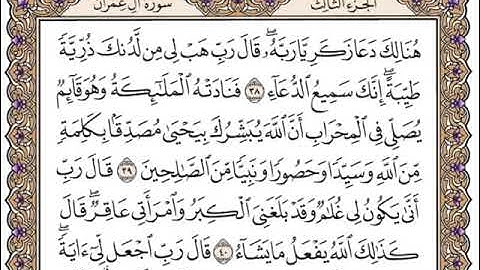 الجزء الثالث
سورة آل عمران
هُنَالِكَ دَعَا زَكَرِيَّا رَبَّهُۥۖ قَالَ رَبِّ هَبْ لِى مِن لَّدُنكَ ذُرِّيَّةً
طَيِّبَةًۖ إِنَّكَ سَمِيعُ ٱلدُّعَآءِ ٣٨ فَنَادَتْهُ ٱلْمَلَـٰٓئِكَةُ وَهُوَ قَآئِمٌ
يُصَلِّى فِى ٱلْمِحْرَابِ أَنَّ ٱللَّهَ يُبَشِّرُكَ بِيَحْيَىٰ مُصَدِّقًۢا بِكَلِمَةٍ
مِّنَ ٱللَّهِ وَسَيِّدًا وَحَصُورًا وَنَبِيًّا مِّنَ ٱلصَّـٰلِحِينَ ٣٩ قَالَ رَبِّ
أَنَّىٰ يَكُونُ لِى غُلَـٰمٌ وَقَدْ بَلَغَنِىَ ٱلْكِبَرُ وَٱمْرَأَتِى عَاقِرٌۖ قَالَ
كَذَٰلِكَ ٱللَّهُ يَفْعَلُ مَا يَشَآءُ ٤٠ قَالَ رَبِّ ٱجْعَل لِّىٓ ءَايَةًۖ